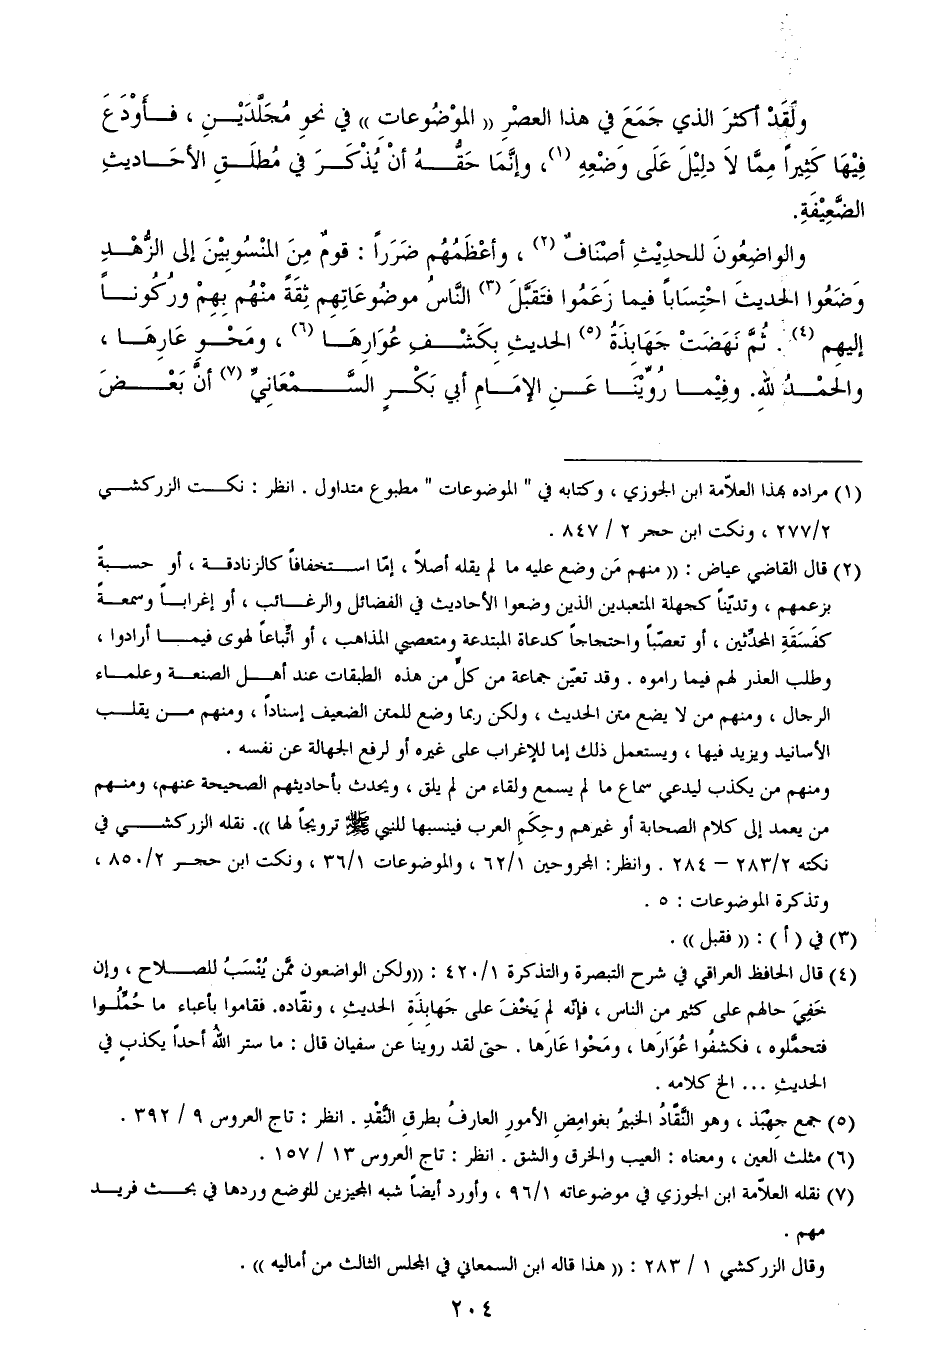 ولَقَدْ أكثرَ الذي جَمَعَ في هذا العصْرِ (( الموْضُوعاتِ )) في نحوِ مُجَلَّدَيْنِ ، فأَوْدَعَ
فِيْهَا كَثِيراً مِمَّا لاَ دليْلَ عَلَى وَضْعِهِ (١)، وإنَّمَا حَقُّهُ أنْ يُذْكَرَ في مُطلَقِ الأحَاديثِ
الضَّعِيْفَةِ.
والواضِعُونَ للحديثِ أصْنَافٌ (٢) ، وأعْظَمُهُم ضَرَراً : قومٌ مِنَ المنْسُوبيْنَ إلى الزُّهْدِ
وَضَعُوا الحديثَ احْتِسَاباً فيما زَعَمُوا فتَقَبَّلَ (٣) النَّاسُ موضُوعَاتِهِم ثِقَةً منْهُم بِهِمْ ورُكُوناً
إليهِم (٤) . ثُمَّ نَهَضَتْ جَهَابذَةُ (٥) الحديثِ بكَشْفِ عُوَارِهَا (٦) ، ومَحْوِ عَارِهَا ،
والحمْدُ للهِ. وفِيْما رُوِّيْنَا عَنِ الإمَامِ أبي بَكْرٍ السَّمْعَانِيِّ (٧) أنَّ بَعْضَ
(١) مراده بهذا العلاّمة ابن الجوزي ، وكتابه في " الموضوعات " مطبوع متداول . انظر : نكت الزركشي
٢٧٧/٢ ، ونكت ابن حجر ٢ / ٨٤٧ .
(٢) قال القاضي عياض : (( منهم مَن وضع عليه ما لم يقله أصلاً ، إمّا استخفافاً كالزنادقة ، أو حسبةً
بزعمهم ، وتديّناً كجهلة المتعبدين الذين وضعوا الأحاديث في الفضائل والرغائب ، أو إغراباً وسمعة
كفسَقَةِ المحدِّثين ، أو تعصّباً واحتجاجاً كدعاة المبتدعة ومتعصبي المذاهب ، أو اتِّباعاً لهوى فيما أرادوا ،
وطلب العذر لهم فيما راموه . وقد تعيّن جماعة من كلٍّ من هذه الطبقات عند أهل الصنعة وعلماء
الرجال ، ومنهم من لا يضع متن الحديث ، ولكن ربما وضع للمتن الضعيف إسناداً ، ومنهم من يقلب
الأسانيد ويزيد فيها ، ويستعمل ذلك إما للإغراب على غيره أو لرفع الجهالة عن نفسه .
ومنهم من يكذب ليدعي سماع ما لم يسمع ولقاء من لم يلق ، ويحدث بأحاديثهم الصحيحة عنهم، ومنهم
من يعمد إلى كلام الصحابة أو غيرهم وحِكَمِ العرب فينسبها للنبي ﷺ ترويجاً لها )). نقله الزركشي في
نكته ٢٨٣/٢ – ٢٨٤ . وانظر: المجروحين ٦٢/١ ، والموضوعات ٣٦/١ ، ونكت ابن حجر ٨٥٠/٢ ،
وتذكرة الموضوعات : ٥ .
(٣) في ( أ ) : (( فقبل )) .
(٤) قال الحافظ العراقي في شرح التبصرة والتذكرة ٤٢٠/١ : ((ولكن الواضعون ممَّن يُنْسَبُ للصلاح ، وإن
خَفِيَ حالهم على كثير من الناس ، فإنّه لم يَخْفَ على جَهابذَةِ الحديثِ ، ونقّاده. فقاموا بأعباء ما حُمِّلُوا
فتحمَّلوه ، فكشفُوا عُوَارَها ، ومَحْوا عَارَها . حتى لقد روينا عن سفيان قال : ما ستر اللهُ أحداً يكذب في
الحديثِ ... الخ كلامه .
(٥) جمع جِهْبَذ ، وهو النَّقَّادُ الخبيرُ بغوامِضِ الأمورِ العارفُ بطرقِ النَّقْدِ . انظر : تاج العروس ٩ / ٣٩٢ .
(٦) مثلث العين ، ومعناه : العيب والخرق والشق . انظر : تاج العروس ١٣ / ١٥٧ .
(٧) نقله العلاّمة ابن الجوزي في موضوعاته ٩٦/١ ، وأورد أيضاً شبه المجيزين للوضع وردها في بحث فريد
مهم .
وقال الزركشي ١ / ٢٨٣ : (( هذا قاله ابن السمعاني في المجلس الثالث من أماليه )) .
٢٠٤